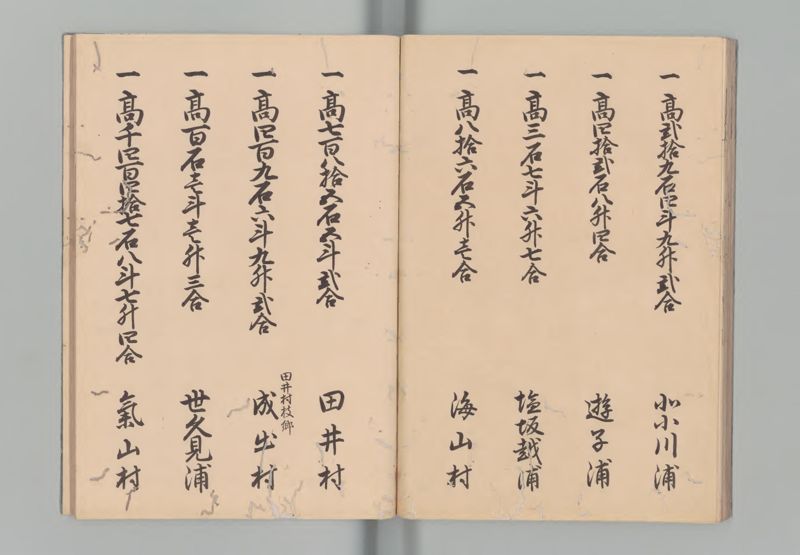 一 高弐拾九石四斗九升弐合 北小川浦
一 高四拾弐石八升四合 遊子浦
一 高三石七斗六升七合 塩坂越浦
一 高八拾六石五升壱合 海山村
一 高七百八拾五石五斗弐合 田井村
田井村枝郷
一 高四百九石六斗九升弐合 成出村
一 高百石壱斗壱升三合 世久見浦
一 高千四百四拾七石八斗七升四合 氣山村